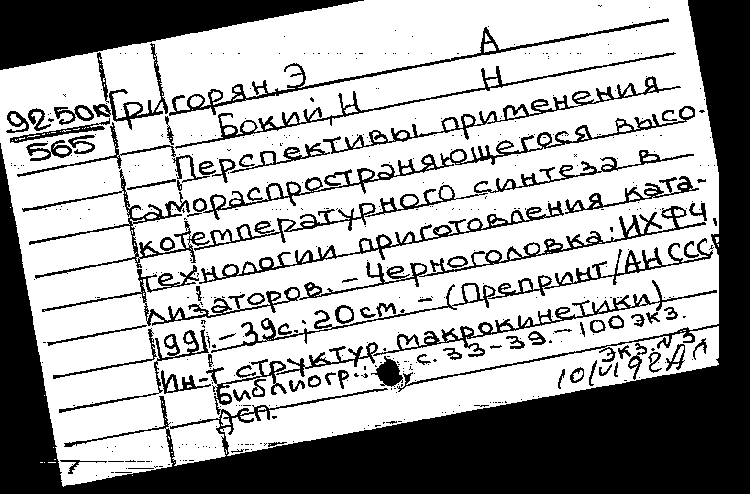 92-50к
565
Григорян, Э А
Бокий, Н Н
Перспективы применения
самораспространяющегося высо-
котемпературного синтеза в
технологии приготовления ката-
лизаторов. – Черноголовка: ИХФЧ,
1991. – 39с.; 20см. – (Препринт/АН СССР
Ин-т структур. макрокинетики).
Библиогр.: с. 33-39. – 100 экз.
ДСП. экз. №3